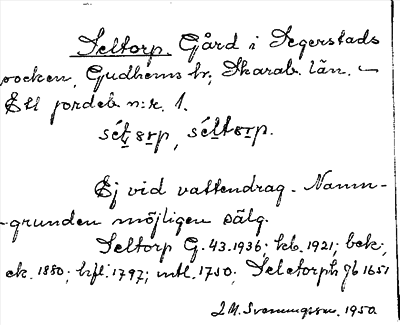 Seltorp. Gård i Segerstads
socken, Gudhems hr, Skarab. län. –
Ett jordeb. n:r. 1.
séltorp.
Ej vid vattendrag. Namn-
-grunden möjligen sälg.
Seltorp G. 43.1936; kb. 1921; bek.,
ek. 1880; hfl. 1797; mtl. 1750; Seletorph Jb 1651
J.M. Svenningsson. 1950.